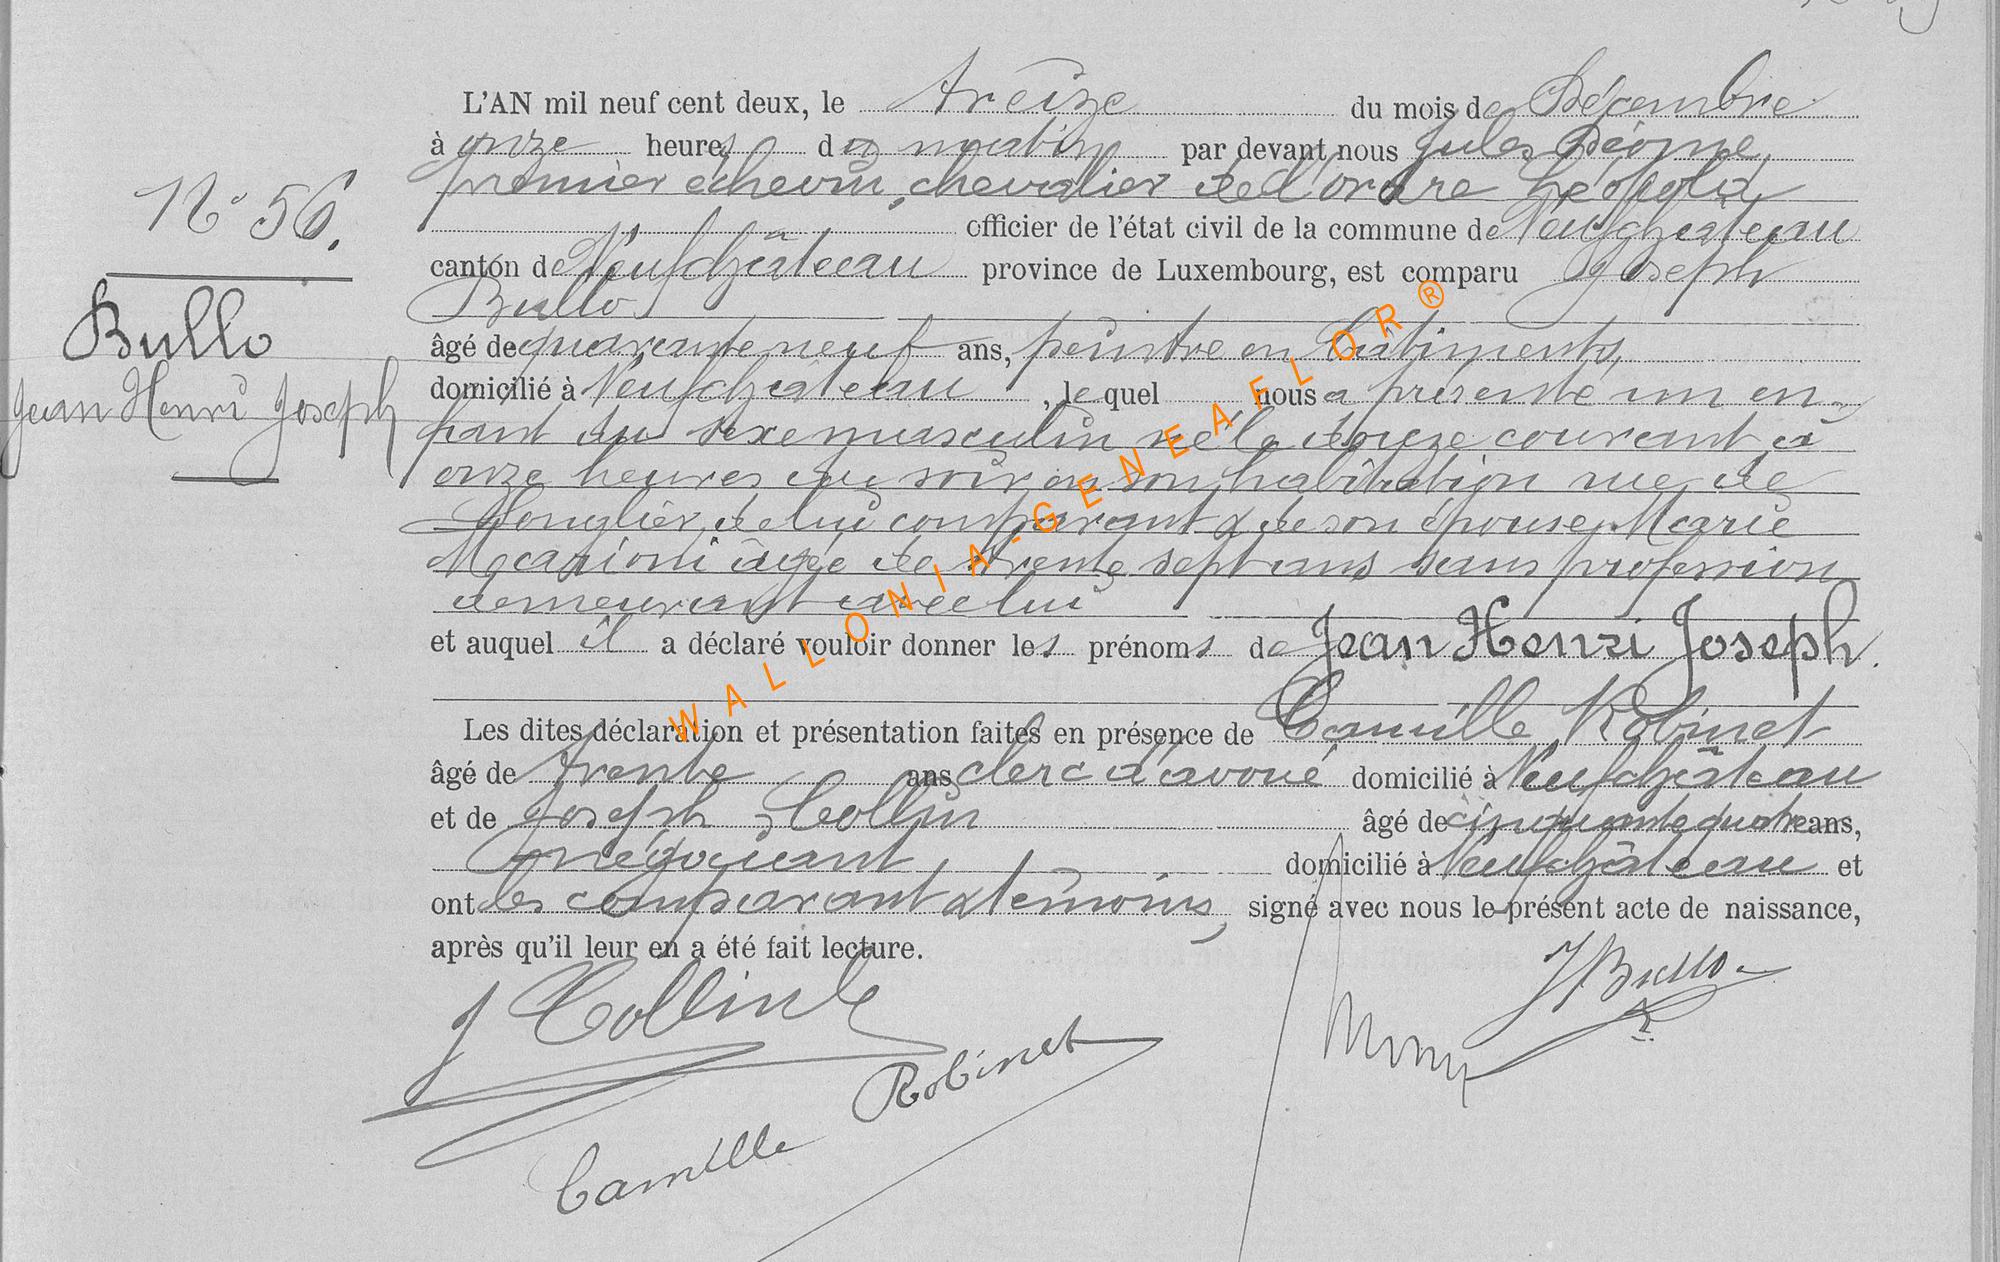 N° 56.
Bullo
Jean Henri Joseph
L'AN mil neuf cent deux, le treize du mois de Décembre
à onze heures du matin par devant nous Jules
premier échevin, chevalier de l'ordre Léopold,
officier de l'état civil de la commune de Neufchâteau
canton de Neufchâteau province de Luxembourg, est comparu Joseph
Bullo
âgé de quarante neuf ans, peintre en bâtiments,
domicilié à Neufchâteau, le quel nous a présenté un en-
fant du sexe masculin né le douze courant à
onze heures du soir en son habitation rue de
Longlier, de lui comparant & de son épouse Marie
âgée de trente sept ans sans profession
demeurant avec lui
et auquel il a déclaré vouloir donner les prénoms de Jean Henri Joseph.
Les dites déclaration et présentation faites en présence de Camille Robinet
âgé de trente ans clerc d'avoué domicilié à Neufchâteau
et de Joseph Collin âgé de cinquante quatre ans,
négociant, domicilié à Neufchâteau et
ont les comparant & témoins, signé avec nous le présent acte de naissance,
après qu'il leur en a été fait lecture.
J Bullo
J Collin
Camille Robinet
WALLONIA-GENEAFLOR®